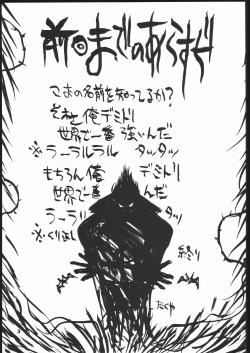 前回までのあらすじ
この名前を知ってるか?
それと俺デミトリ
世界で一番 強いんだ
※ラーラルラル タッタッ
もちろん俺 デミトリ
世界で一番 んだ
ラーラリ タッ
※くりかえし
終り
たくや